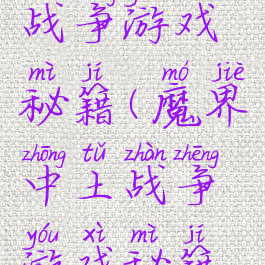 战争游戏
mì jí mó jiè
秘籍(魔界
zhōng tǔ zhàn zhēng
中土战争
yóu xì mì jí
游戏秘籍